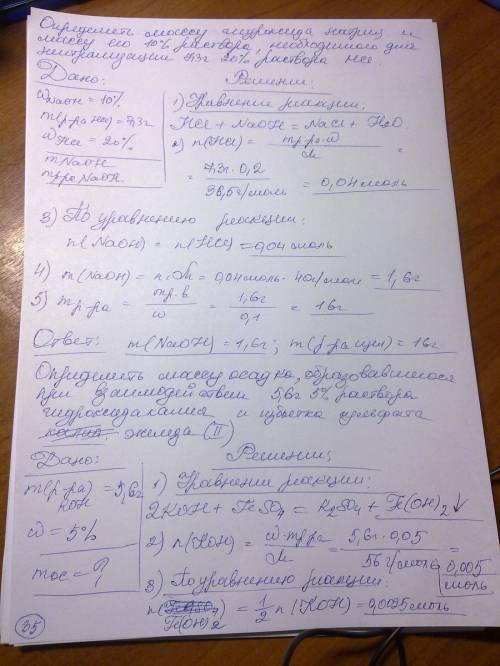 Определить массу гидроксида натрия и
массу его 10% раствора, необходимого для
нейтрализации 7,3г 20% раствора HCl.
Дано:
Решение:
ω NaOH = 10%
m(р-ра HCl) = 7,3г
ω HCl = 20%
m NaOH
m р-ра NaOH
1) Уравнение реакции:
HCl + NaOH = NaCl + H2O
2) n(HCl) = mр-ра·ω / M =
= 7,3г·0,2 / 36,5г/моль = 0,04 моль
3) По уравнению реакции:
n(NaOH) = n(HCl) = 0,04 моль
4) m(NaOH) = n·M = 0,04моль·40г/моль = 1,6г
5) mр-ра = mр.в. / ω = 1,6г / 0,1 = 16г
Ответ: m(NaOH) = 1,6г; m(р-ра щел) = 16г
Определить массу осадка, образовавшегося
при взаимодействии 5,6г 5% раствора
гидроксида калия и избытка сульфата
железа (II)
Дано:
Решение:
m(р-ра) KOH = 5,6г
ω = 5%
mос = ?
1) Уравнение реакции:
2KOH + FeSO4 = K2SO4 + Fe(OH)2↓
2) n(KOH) = ω·mр-ра / M = 5,6г·0,05 / 56г/моль = 0,005 моль
3) По уравнению реакции:
n(Fe(OH)2) = 1/2 n(KOH) = 0,0025 моль
35